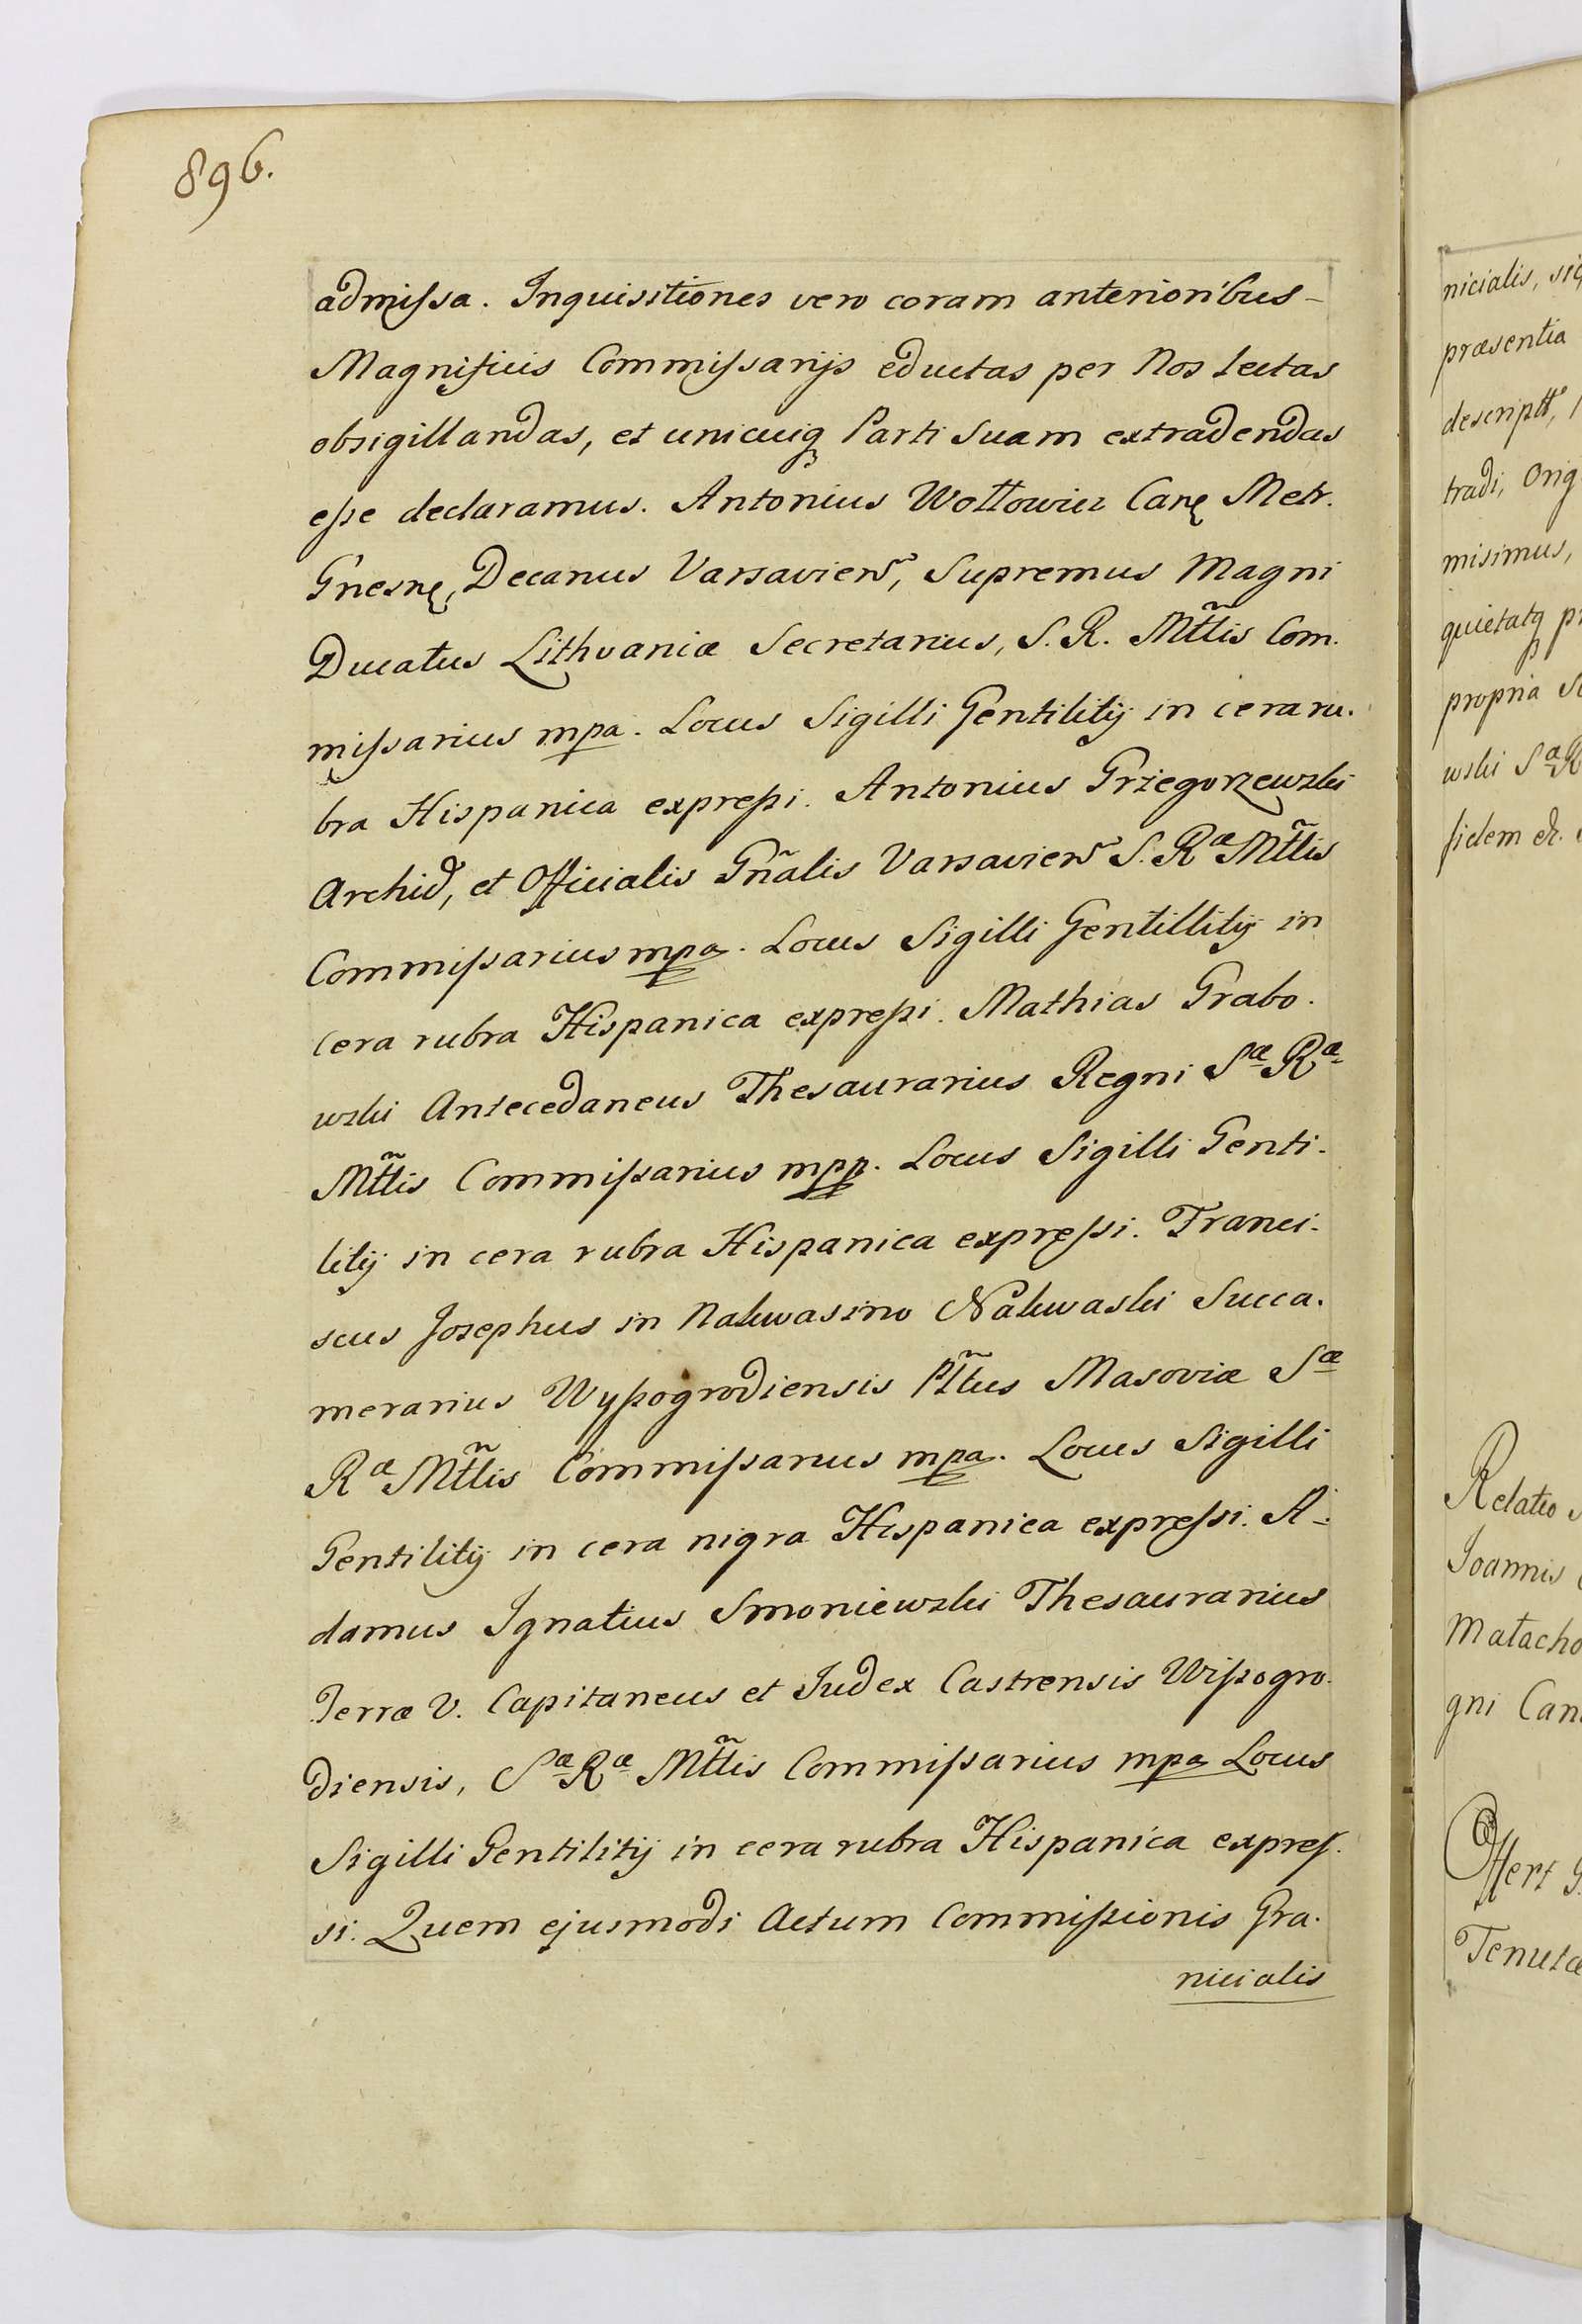 896.
admissa. Inquisitiones vero coram anterioribus
Magnificis Commissarijs eductas per Nos lectas
obsigillandas, et unicuiq Parti suam extradendas
esse declaramus. Antonius Wołłowicz Canę Metr.
Gnesnę, Decanus Varsavien, Supremus Magni
Ducatus Lithvaniæ Secretarius, S. R. Mttis Com.
missarius mpa. Locus Sigilli Gentilitij in cera ru.
bra Hispanica expressi. Antonius Grzegorzewski
Archid, et Officialis Gñalis Varsavien S. Ræ Mttis
Commissarius mpa. Locus Sigilli Gentillitij in
cera rubra Hispanica expressi. Mathias Grabo.
wski Antecedaneus Thesaurarius Regni Sæ Ræ
Mttis Commissarius mpp. Locus Sigilli Genti.
litij in cera rubra Hispanica expressi. Franci.
scus Josephus in Nakwasino Nakwaski Succa.
merarius Wyszogrodiensis Pltus Masoviæ Sæ
Ræ Mttis Commissarius mpa. Locus Sigilli
Gentilitij in cera nigra Hispanica expressi. A.
damus Ignatius Smoniewski Thesaurarius
Terræ V. Capitaneus et Iudex Castrensis Wiszogro.
diensis, Sæ Ræ Mttis Commissarius mpa Locus
Sigilli Gentilitij in cera rubra Hispanica expres.
si. Quem ejusmodi Actum Commissionis Gra.
nicialis
nicialis, sig
præsentia
descriptt,
tradi, Orig
misimus,
quietatq pr
propria
wski Sæ R
fidem
Relatio
Joannis
Małacho
gni Can
Offert G
Tenutæ